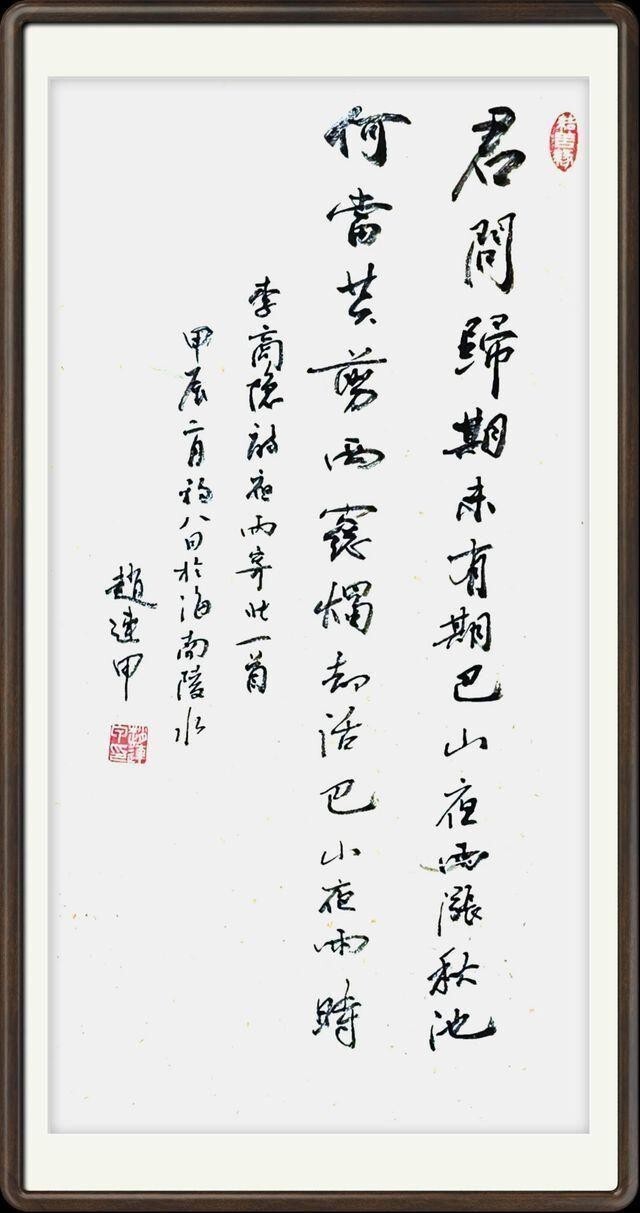 君問歸期未有期巴山夜雨漲秋池
何當共剪西窓燭却話巴山夜雨時
李商隐詩夜雨寄北一首
甲辰二月初八日於海南陵水
趙連甲
趙連甲印